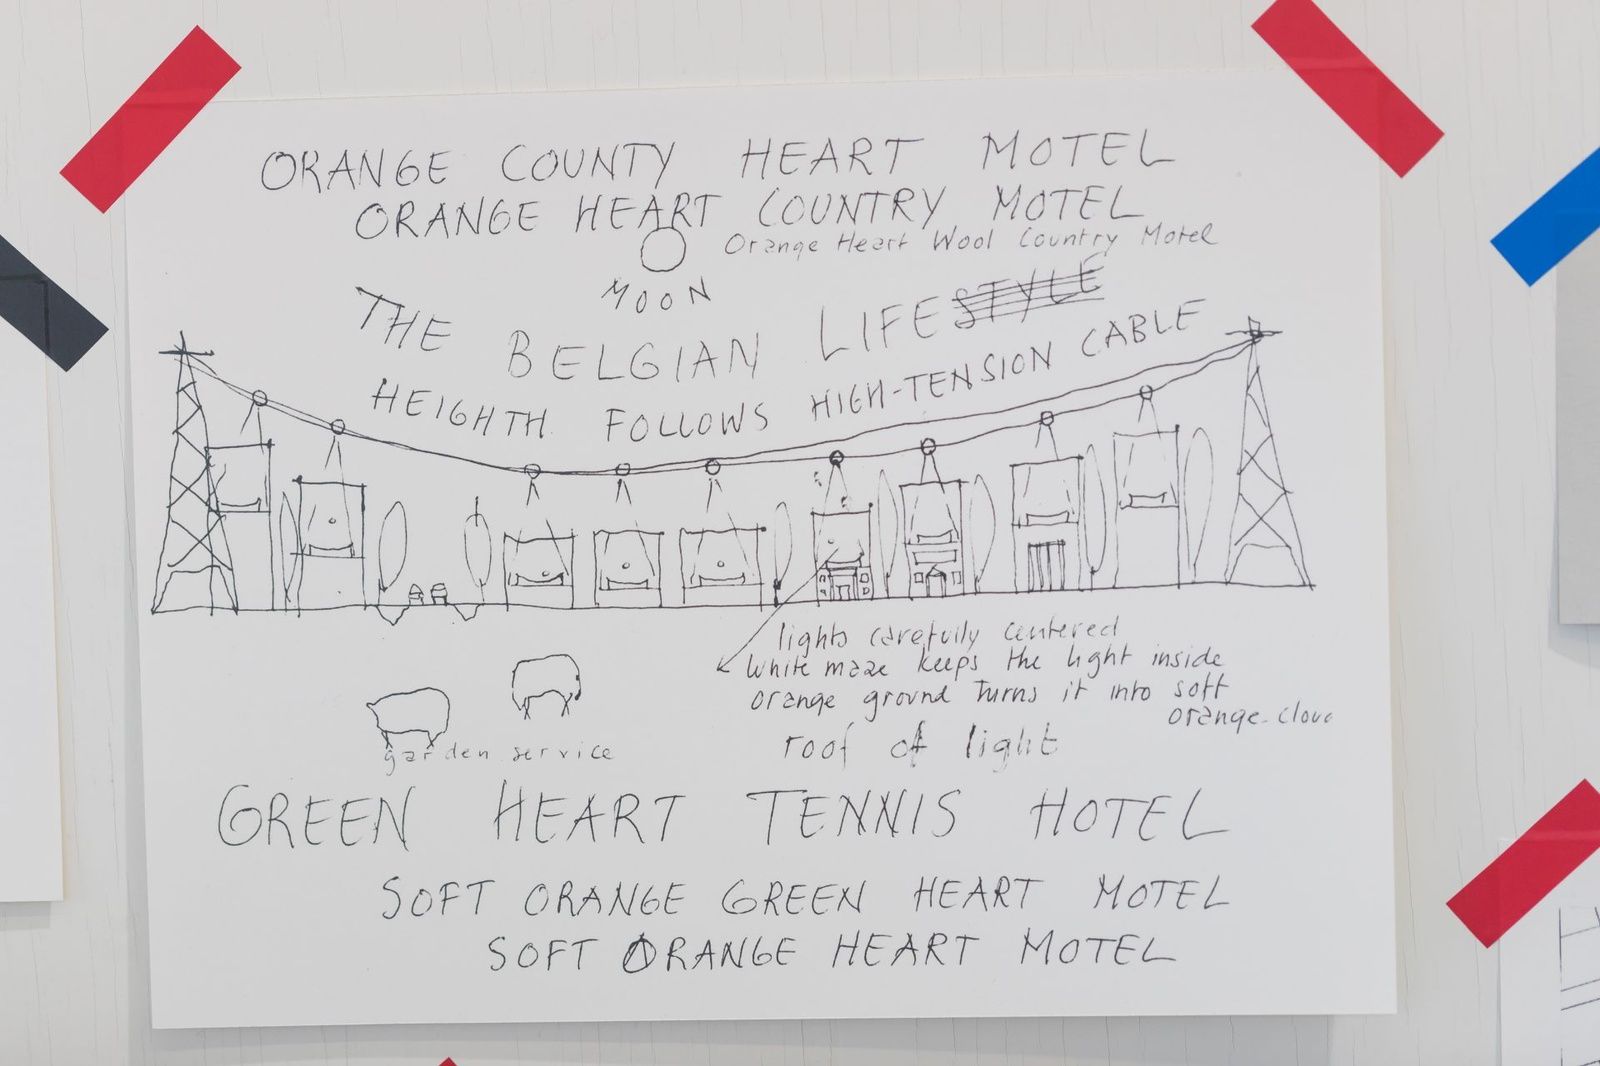 ORANGE COUNTY HEART MOTEL
ORANGE HEART COUNTRY MOTEL
Orange Heart Wool Country Motel
MOON
THE BELGIAN LIFESTYLE
HEIGHTH FOLLOWS HIGH-TENSION CABLE
lights carefully centered
white maze keeps the light inside
orange ground turns it into soft
orange-cloud
roof of light
garden service
GREEN HEART TENNIS HOTEL
SOFT ORANGE GREEN HEART MOTEL
SOFT ORANGE HEART MOTEL